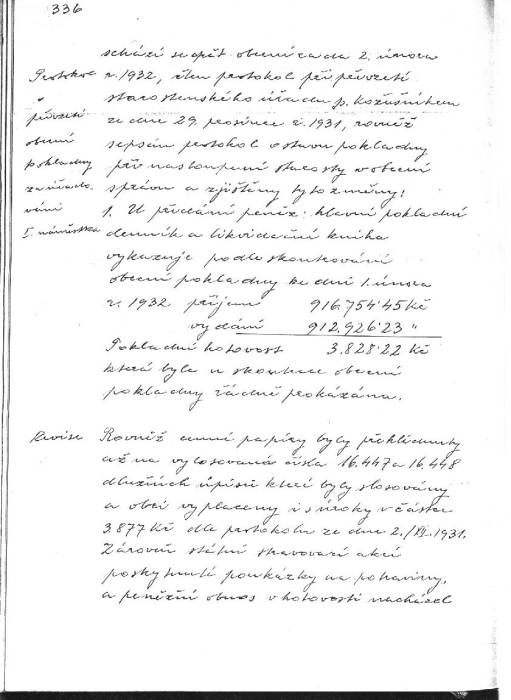 336
schází se opět obecní rada 2. února
r. 1932, čten protokol při převzetí
starostenského úřadu p. Kožušníkem
ze dne 29. prosince r. 1931, rovněž
sepsán protokol o stavu pokladny
při nastoupení starosty v obecní
správu a zjištěny tyto změny:
1. U předání peněz: hlavní pokladní
denník a likvidační kniha
vykazuje podle skontrování
obecní pokladny ke dni 1. února
r. 1932 příjem 916.754'45 Kč
vydání 912.926'23 "
Pokladní hotovost 3.828'22 Kč
která byla u skontrace obecní
pokladny řádně prokázána.
Rovněž cenné papíry byly přehlédnuty
až na vylosovaná čísla 16.447 a 16.448
dlužních úpisů které byly slosovány
a obci vyplaceny i s úroky v částce
3.877 Kč dle protokolu ze dne 2./XII. 1931.
Zároveň státní stravovací akcí
poskytnuté poukázky na potraviny,
a peněžní obnos v hotovosti nacházel
Protokol
o
převzetí
obecní
pokladny
za úřado-
vání
I. náměstka
Revise